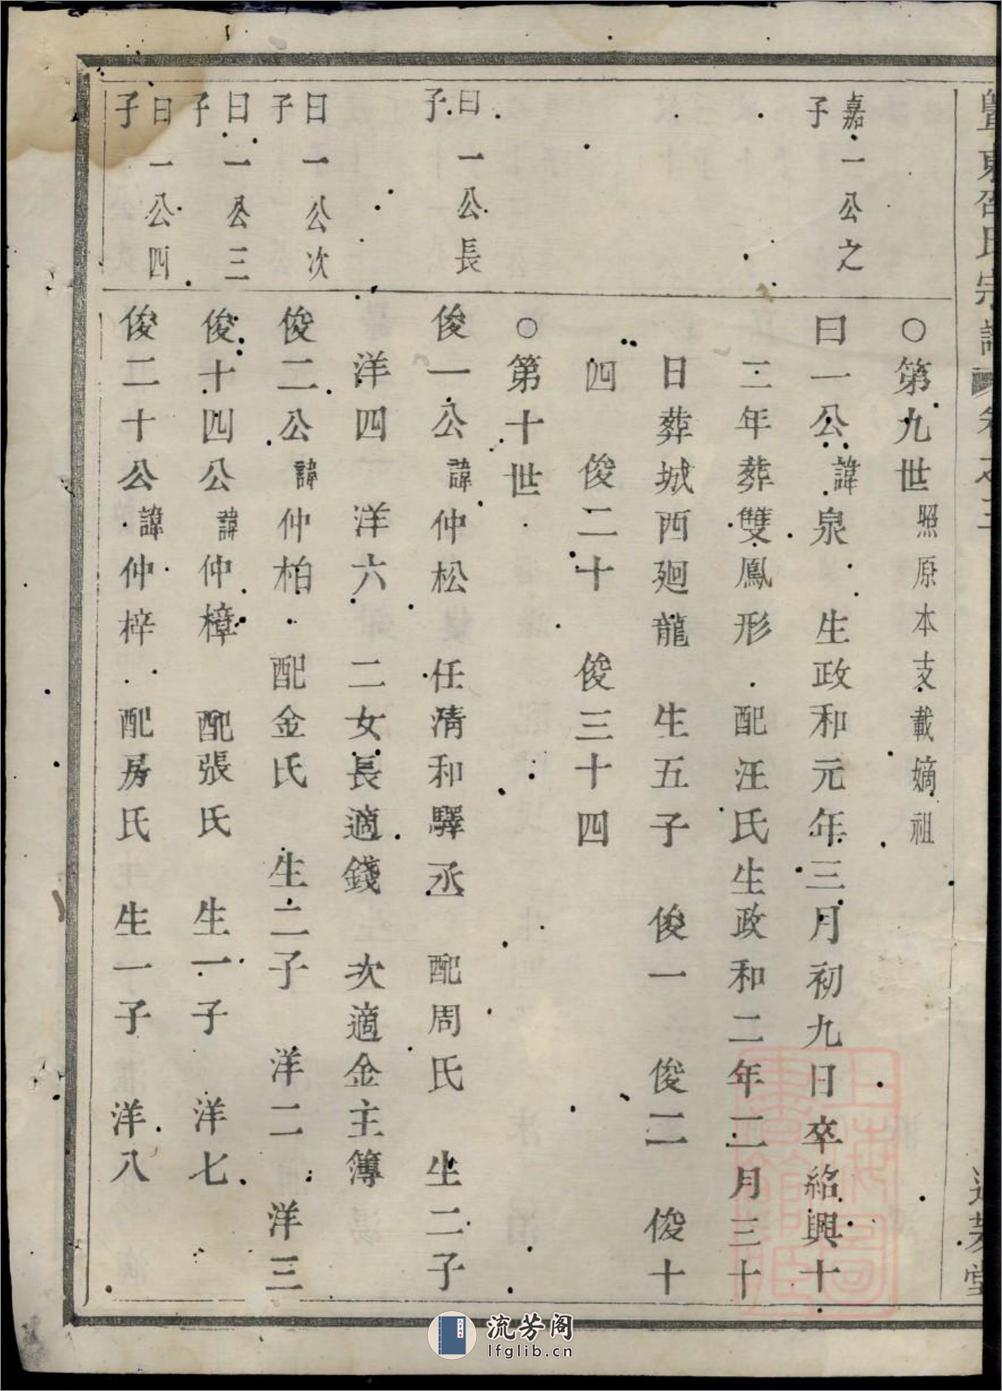 暨東邵氏宗譜 卷之三
○第九世照原本支載嫡祖
嘉一公之子
曰一公諱泉 生政和元年三月初九日卒紹興十
二年葬雙鳳形 配汪氏生政和二年二月三十
日葬城西廻龍 生五子 俊一 俊二 俊十
四 俊二十 俊三十四
○第十世
曰一公長子
俊一公諱仲松 任清和驛丞 配周氏 生二子
洋四 洋六 二女長適錢 次適金主簿
曰一公次子
俊二公諱仲柏 配金氏 生二子 洋二 洋三
曰一公三子
俊十四公諱仲樟 配張氏 生一子 洋七
曰一公四子
俊二十公諱仲梓 配房氏 生一子 洋八
流芳阁
lfglib.cn